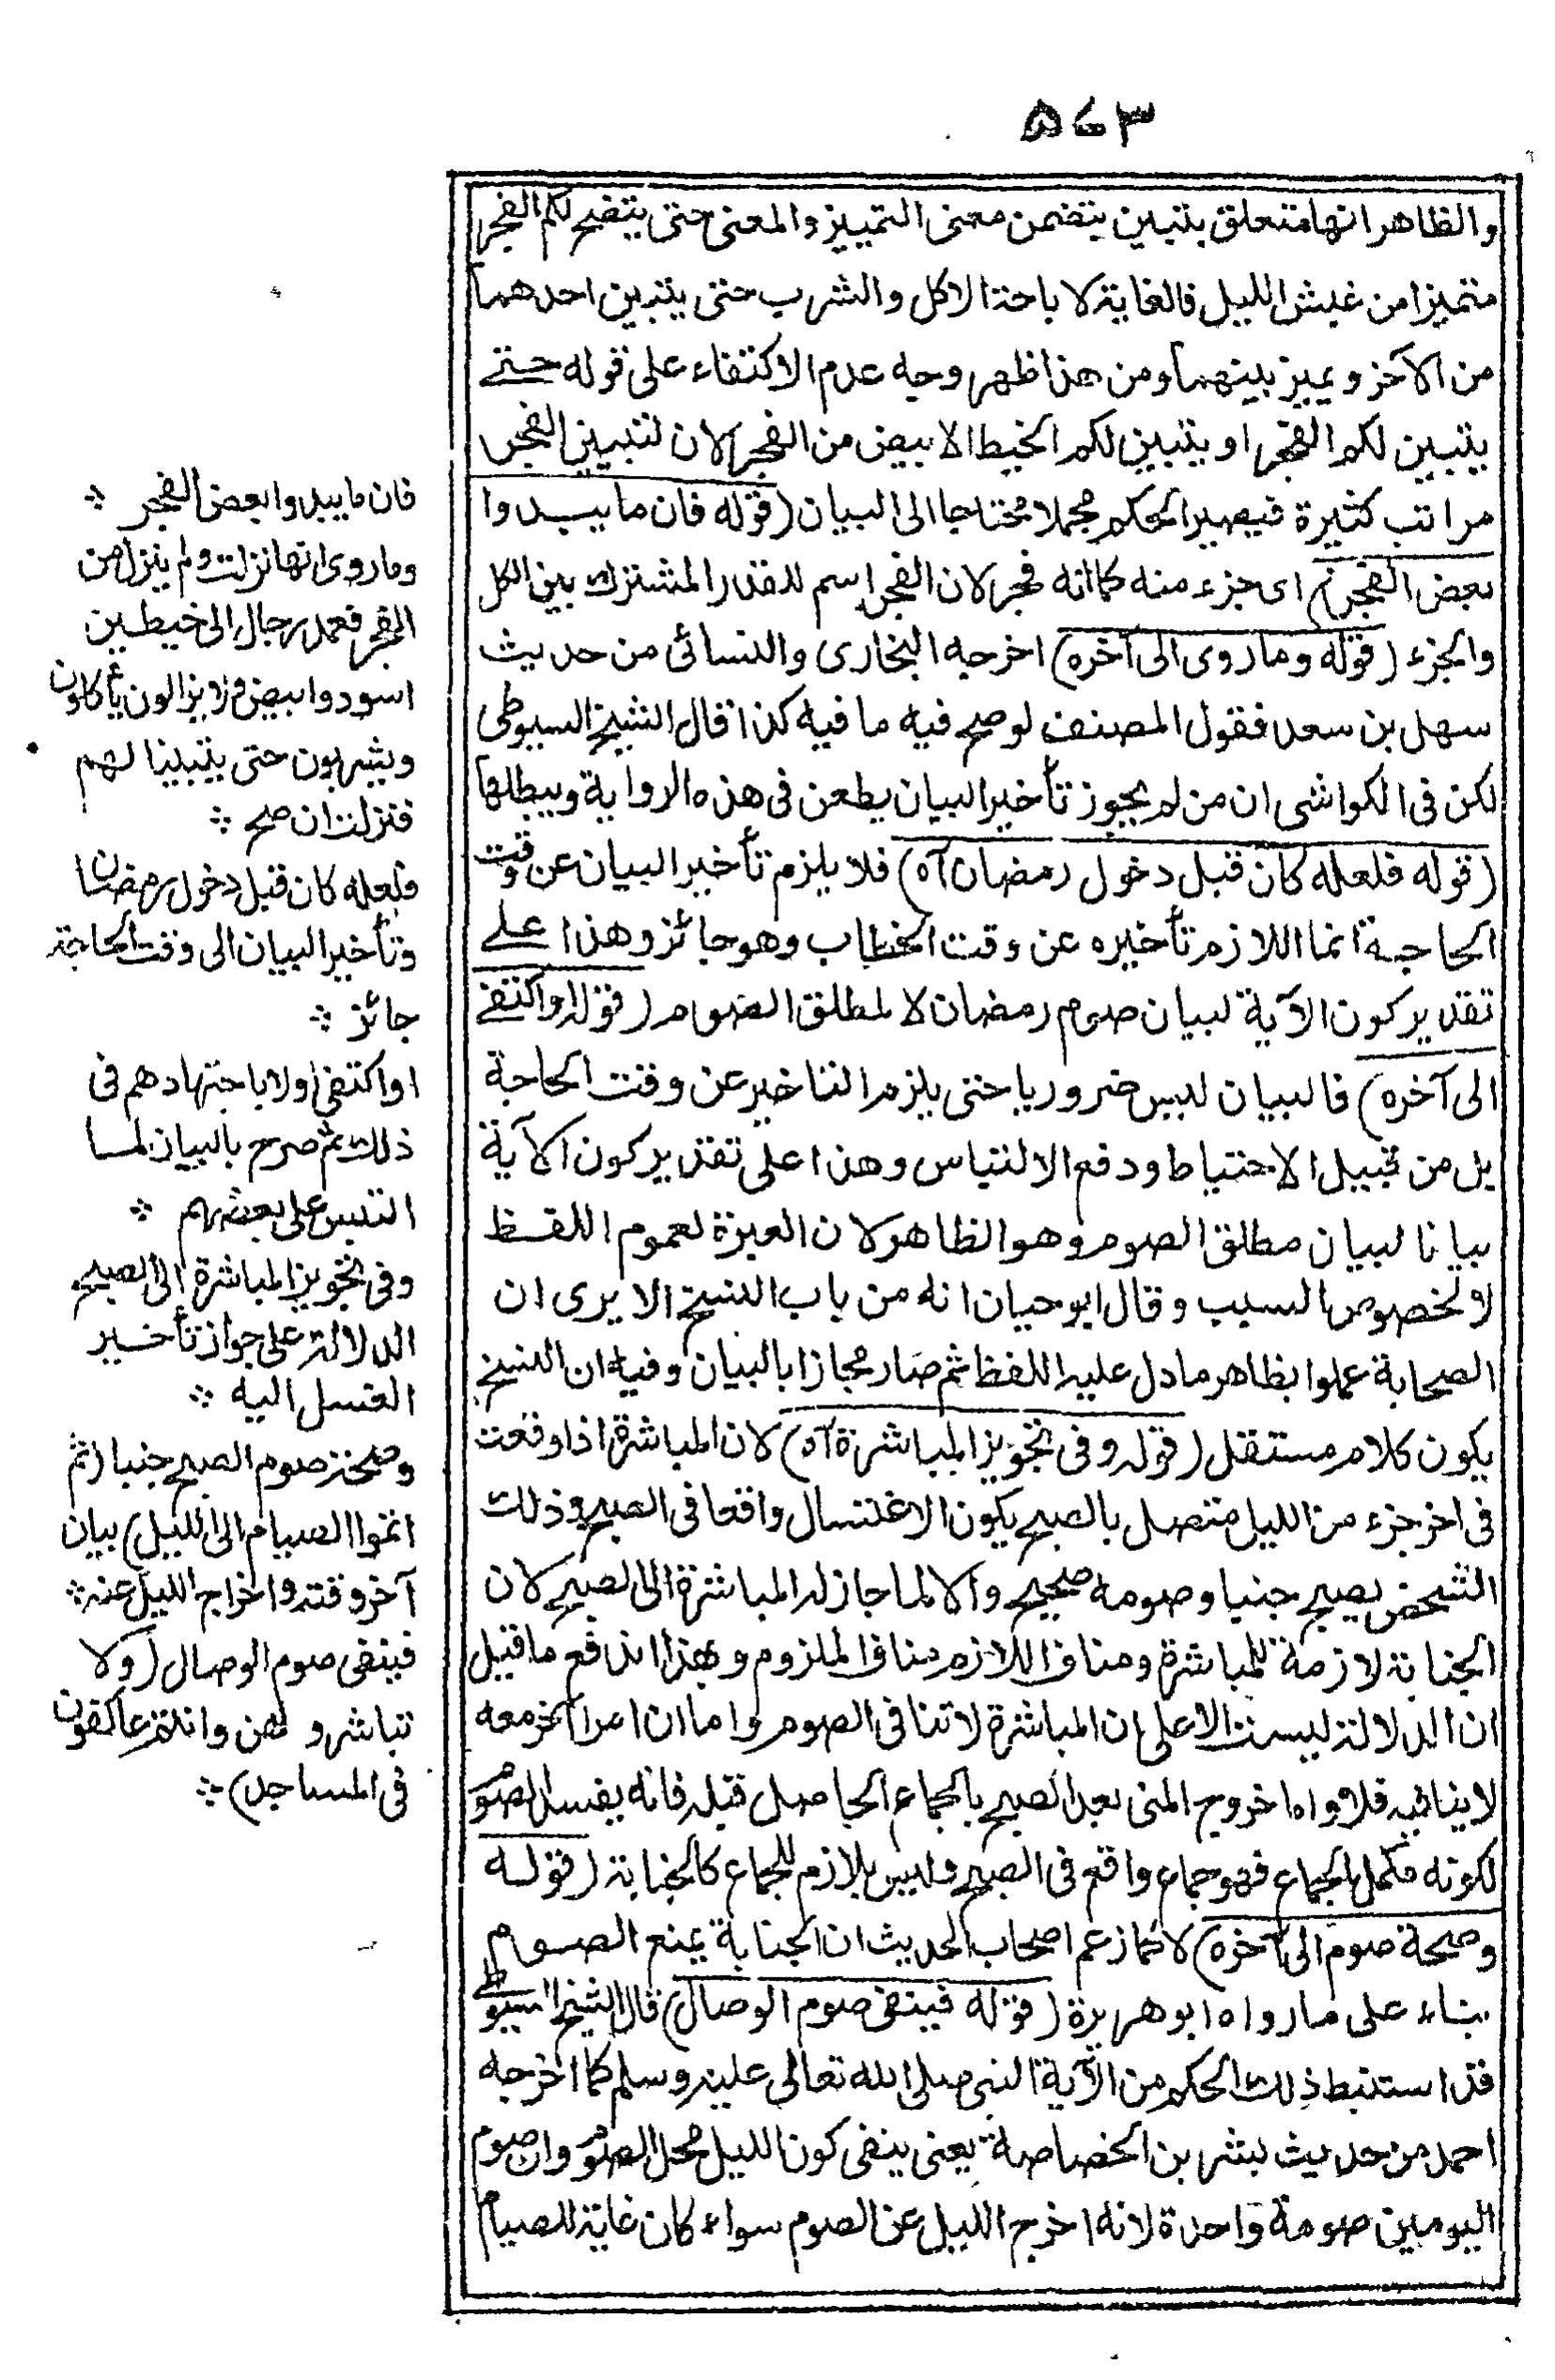 ٥٤٣
والظاهر انها متعلق بتبين يتضمن معنى التمييز والمعنى حتى يتضح لكم الفجر
متميزا من غبش الليل فالغاية لاباحة الاكل والشرب حتى يتبين احدهما
من الآخر ويميز بينهما ومن هذا ظهر وجه عدم الاكتفاء على قوله حتى
يتبين لكم الفجر او يتبين لكم الخيط الابيض من الفجر لان لتبيين الفجر
مراتب كثيرة فيصير الحكم مجملا محتاجا الى البيان (قوله فان ما يبدوا
بعض الفجر) اى جزء منه كما انه فجر لان الفجر اسم للقدر المشترك بين الكل
والجزء (قوله وما روى الى آخره) اخرجه البخارى والنسائى من حديث
سهل بن سعد فقول المصنف لو صح فيه ما فيه كذا قال الشيخ السيوطى
لكن فى الكواشى ان من لم يجوز تأخير البيان يطعن فى هذه الرواية ويبطلها
(قوله فلعله كان قبل دخول رمضان آه) فلا يلزم تأخير البيان عن وقت
الحاجة انما اللازم تأخيره عن وقت الخطاب وهو جائز وهذا على
تقدير كون الآية لبيان صوم رمضان لا لمطلق الصوم (قوله او اكتفى
الى آخره) فالبيان ليس ضروريا حتى يلزم التاخير عن وقت الحاجة
بل من قبيل الاحتياط ودفع الالتباس وهذا على تقدير كون الآية
بيانا لبيان مطلق الصوم وهو الظاهر لان العبرة لعموم اللفظ
لا لخصوص السبب وقال ابو حيان انه من باب النسخ الا يرى ان
الصحابة عملوا بظاهر ما دل عليه اللفظ ثم صار مجازا بالبيان وفيه ان النسخ
يكون كلام مستقل (قوله وفى تجويز المباشرة آه) لان المباشرة اذا وقعت
فى اخر جزء من الليل متصل بالصبح يكون الاغتسال واقعا فى الصبح وذلك
الشخص يصبح جنبا وصومه صحيح والا لما جاز له المباشرة الى الصبح لان
الجنابة لازمة للمباشرة ومنافى اللازم منافى الملزوم وبهذا اندفع ما قيل
ان الدلالة ليست الا على ان المباشرة لا تنافى الصوم واما ان امرا آخر معه
لا ينافيه فلا واما خروج المنى بعد الصبح بالجماع الحاصل قبله فانه يفسد الصوم
لكونه مكمل الجماع فهو جماع واقع فى الصبح وليس بلازم للجماع كالجنابة (قوله
وصحة صوم الى آخره) لا كما زعم اصحاب الحديث ان الجنابة يمنع الصوم
بناء على ما رواه ابو هريرة (قوله فينفى صوم الوصال) قال الشيخ السيوطى
قد استنبط ذلك الحكم من الآية النبى صلى الله تعالى عليه وسلم كما اخرجه
احمد من حديث بشر بن الخصاصة يعنى ينفى كون الليل محل الصوم وان صوم
اليومين صومة واحدة لانه اخرج الليل عن الصوم سواء كان غاية للصيام
فان ما يبدوا بعض الفجر
وما روى انها نزلت ولم ينزل من
الفجر فعمد رجال الى خيطين
اسود وابيض ولا يزالون يأكلون
ويشربون حتى يتبينا لهم
فنزلت ان صح
فلعله كان قبل دخول رمضان
وتأخير البيان الى وقت الحاجة
جائز
او اكتفى اولا باجتهادهم فى
ذلك ثم صرح بالبيان لما
التبس على بعضهم
وفى تجويز المباشرة الى الصبح
الدلالة على جواز تأخير
الغسل اليه
وصحة صوم الصبح جنبا (ثم
اتموا الصيام الى الليل) بيان
آخر وقته واخراج الليل عنه
فينفى صوم الوصال (ولا
تباشروهن وانتم عاكفون
فى المساجد)